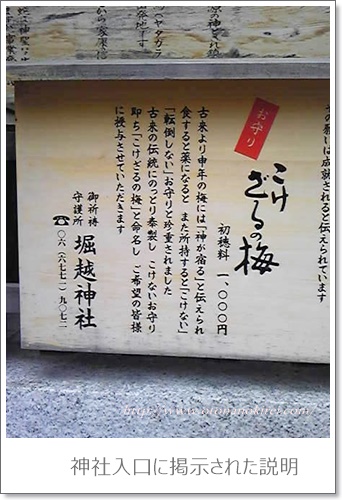 その願いは成就されると伝えています
お守り
こけざるの梅
初穂料 一、〇〇〇円
古来より申年の梅には「神が宿る」と伝えられ
食すると薬になると また所持すると「こけない」
「転倒しない」お守りと珍重されました
古来の伝統にのっとり奉製し こけないお守り
即ち「こけざるの梅」と命名し ご希望の皆様
に授与させていただきます
御祈祷
守護所
堀越神社
☎〇六(六七七一)九〇七二
神社入口に掲示された説明